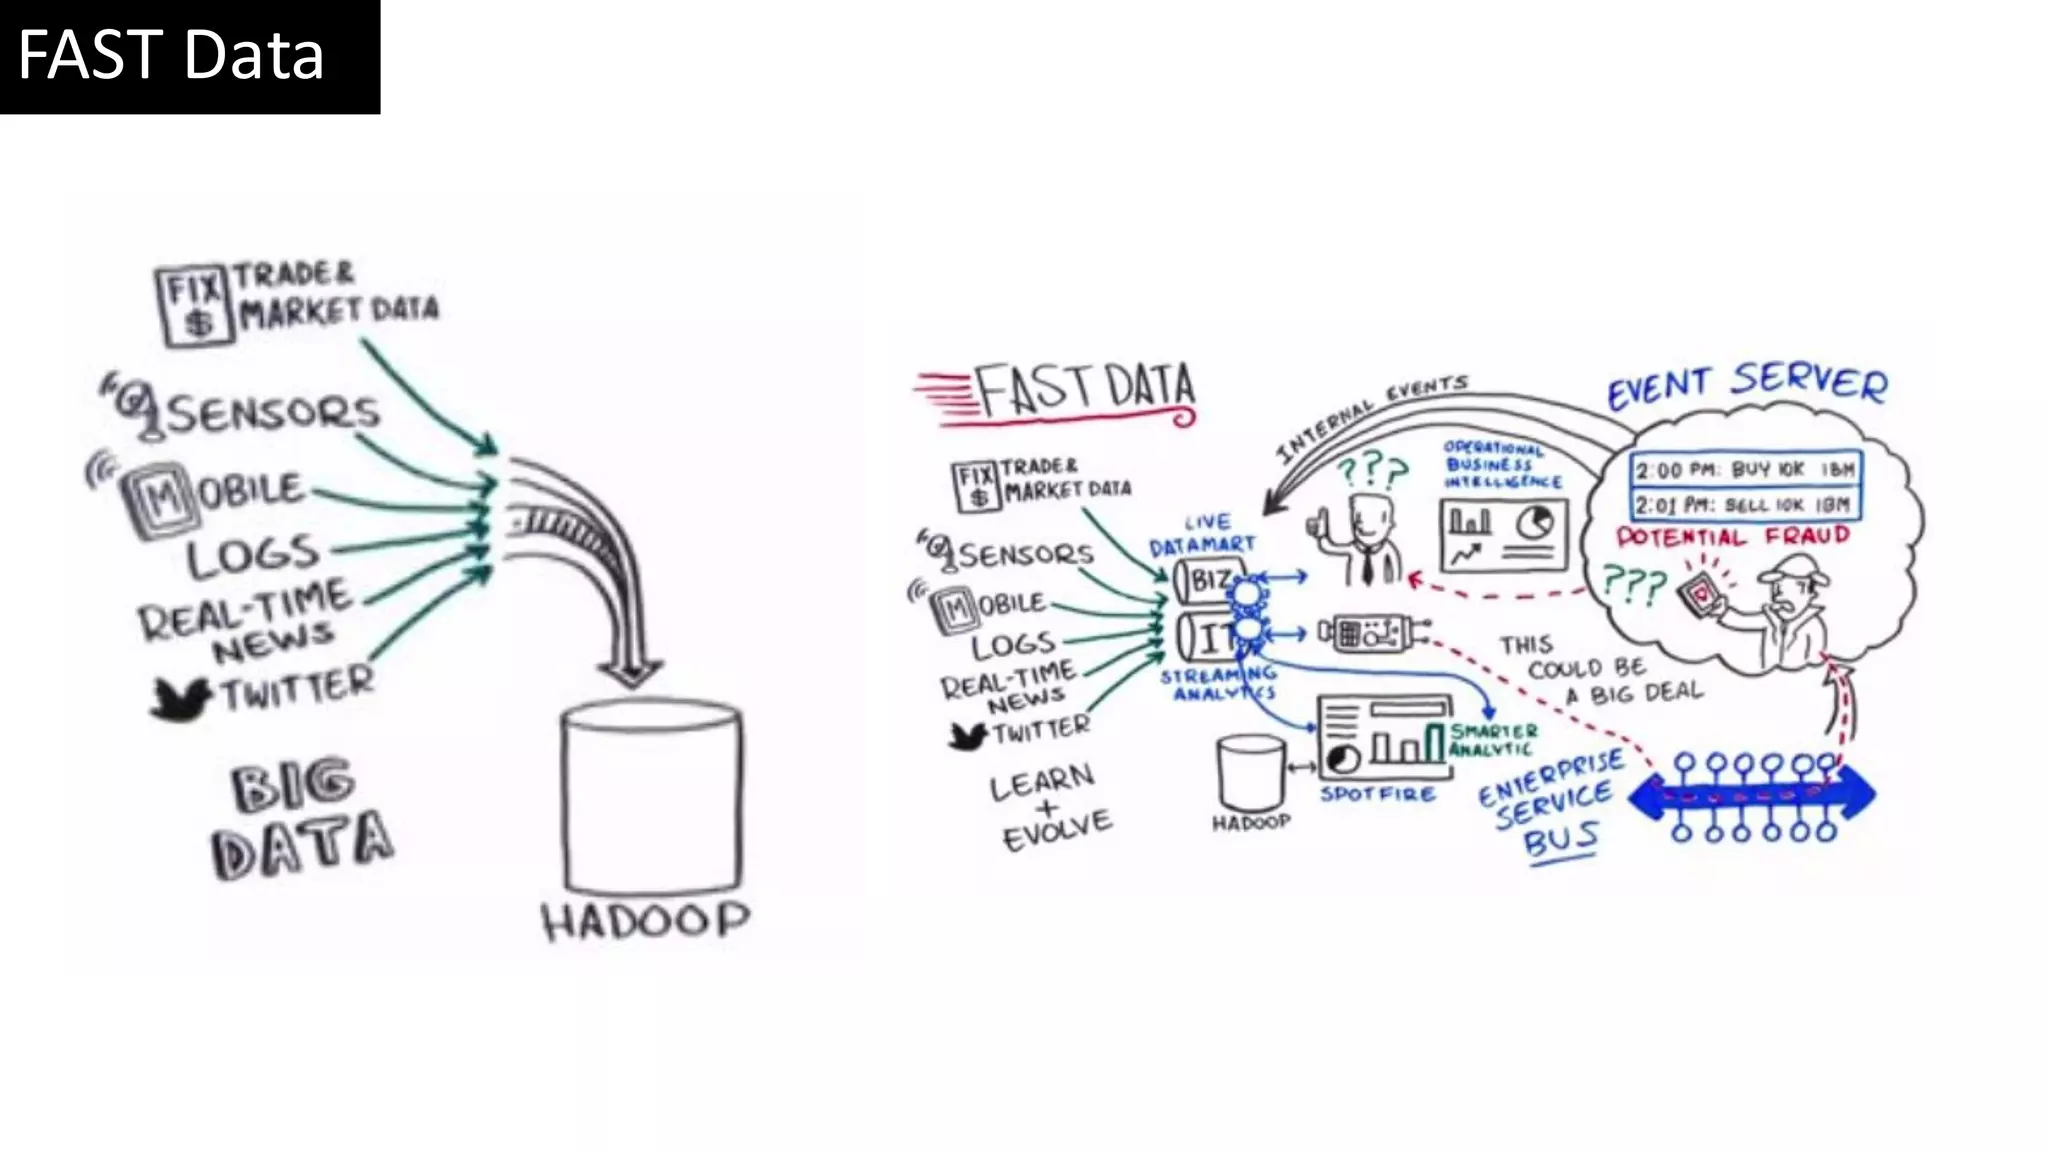 FAST Data
FIX
$
TRADE &
MARKET DATA
SENSORS
MOBILE
LOGS
REAL-TIME
NEWS
TWITTER
BIG
DATA
HADOOP
FAST DATA
FIX
$
TRADE &
MARKET DATA
SENSORS
MOBILE
LOGS
REAL-TIME
NEWS
TWITTER
LEARN
+
EVOLVE
LIVE
DATAMART
BIZ
IT
STREAMING
ANALYTICS
HADOOP
SPOTFIRE
SMARTER
ANALYTIC
INTERNAL EVENTS
???
OPERATIONAL
BUSINESS
INTELLIGENCE
EVENT SERVER
2:00 PM: BUY 10K IBM
2:01 PM: SELL 10K IBM
POTENTIAL FRAUD
???
THIS
COULD BE
A BIG DEAL
ENTERPRISE
SERVICE
BUS